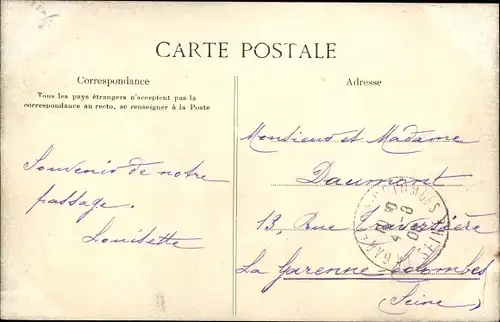 CARTE POSTALE
Correspondance
Tous les pays étrangers n'acceptent pas la
correspondance au recto, se renseigner à la Poste
Souvenir de notre
passage.
Louisette
Adresse
Monsieur et Madame
Daumont
13, Rue Traversière
La Garenne-Colombes
(Seine)
GARE
SEINE